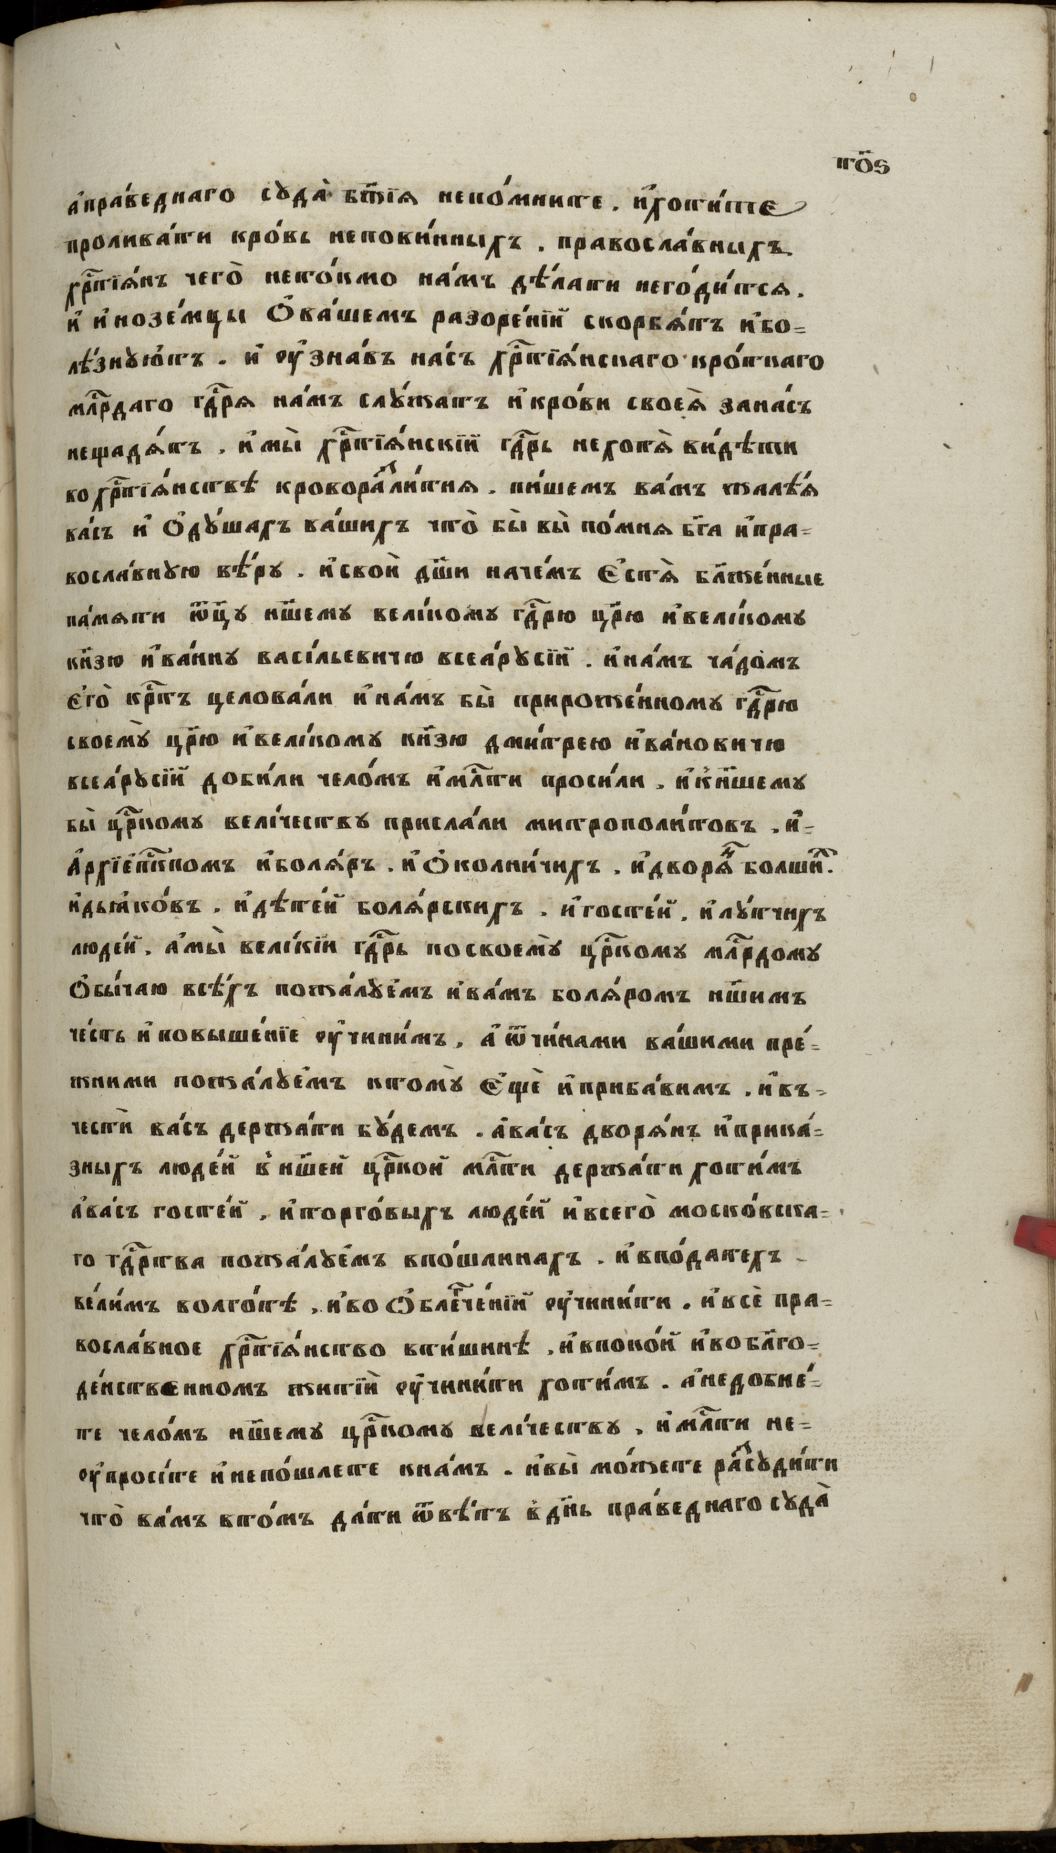 т҃ѻѕ
а҆пра́веднаго суда̀ бж҃їѧ непо́мните . и҆хоти́те
пролива́ти кро́вь непови́нныхъ . правосла́вныхъ
хрⷭ҇тїѧ́нъ чего̀ нето́кмо на́мъ дѣ́лати него́дитсѧ .
и҆ и҆ноземцы Ѻ҆ва́шемъ разоре́нїй скорбѧ́тъ и҆бо=
лѣ́знуютъ . и҆ ѹ҆зна́въ на́съ хрⷭ҇тїѧ́нскаго кро́ткаго
млⷭ҇рдаго гдⷭ҇рѧ на́мъ слу́жатъ и҆кро́ви своеѧ̀ зана́съ
нещадѧ́тъ . и҆мы̀ хрⷭ҇тїѧ́нскїй гдⷭ҇рь нехотѧ̀ ви́дѣти
во хрⷭ҇тїѧ́нствѣ кровораⷥли́тиѧ . пи́шемъ ва́мъ жалѣ́ѧ
ва́съ и҆ Ѻ҆ду́шахъ ва́шихъ что̀ бы̀ вы̀ по́мнѧ бг҃а и҆пра=
восла́вную вѣ́ру . и҆свои̑ дш҃и наче́мъ Є҆стѧ̀ бл҃же́нные
па́мѧти ѿц҃у нш҃ему вели́кому гдⷭ҇рю цр҃ю и҆вели́кому
кн҃зю и҆ва́нну васи́льевичю всеа́русїй . и҆на́мъ ча́домъ
є҆го̀ крⷭ҇тъ целова́ли и҆на́мъ бы̀ прироже́нному гдⷭ҇рю
своему̀ цр҃ю и҆вели́кому кн҃зю дми́трею и҆ва́новичю
всеа́русїй доби́ли чело́мъ и҆млⷭ҇ти просили . и҆кнш҃ему
бы̀ црⷭ҇кому вели́честву присла́ли митрополи́товъ . и҆=
а҆рхїепⷭ҇копомъ и҆болѧ́ръ . и҆Ѻ҆колни́чихъ . и҆дворѧⷩ҇ болши́ⷯ.
и҆дьѧко́въ . и҆дѣте́й болѧ́рскихъ . и҆госте́й . и҆лу́тчихъ
люде́й . а҆мы̀ вели́кїй гдⷭ҇рь посвоему̀ црⷭ҇кому млⷭ҇рдому
Ѻ҆бы́чаю всѣ́хъ пожа́луемъ и҆ва́мъ болѧ́ромъ нш҃имъ
че́сть и҆повыше́нїе ѹ҆чини́мъ . а҆ ѿчи́нами ва́шими пре́=
жними пожа́луемъ ктому̀ Є҆щѐ и҆приба́вимъ . и҆въ=
че́сти ва́съ держа́ти бу́демъ . а҆ва́съ дворѧ́нъ и҆прика́=
зныхъ люде́й в нш҃ей црⷭ҇кой млⷭ҇ти держа́ти хоти́мъ
а҆ва́съ госте́й . и҆торго́выхъ люде́й и҆всего̀ моско́вска=
го гдⷭ҇рства пожа́луемъ впо́шлинахъ . и҆впо́датехъ
вели́мъ волго́тѣ . и҆во Ѻ҆блеⷢ҇че́нїй ѹ҆чини́ти . и҆всѐ пра=
восла́вное хрⷭ҇тїѧ́нство вти́шинѣ . и҆впоко́й и҆во бл҃го=
де́нственномъ житїй ѹ҆чини́ти хоти́мъ . а҆недобие́=
те чело́мъ нш҃ему црⷭ҇кому вели́честву . и҆млⷭ҇ти не=
ѹ҆проси́те и҆непо́шлете кна́мъ . и҆вы̀ мо́жете раⷥсуди́ти
что̀ ва́мъ вто́мъ да́ти ѿвѣ́тъ вдн҃ь пра́веднаго суда̀